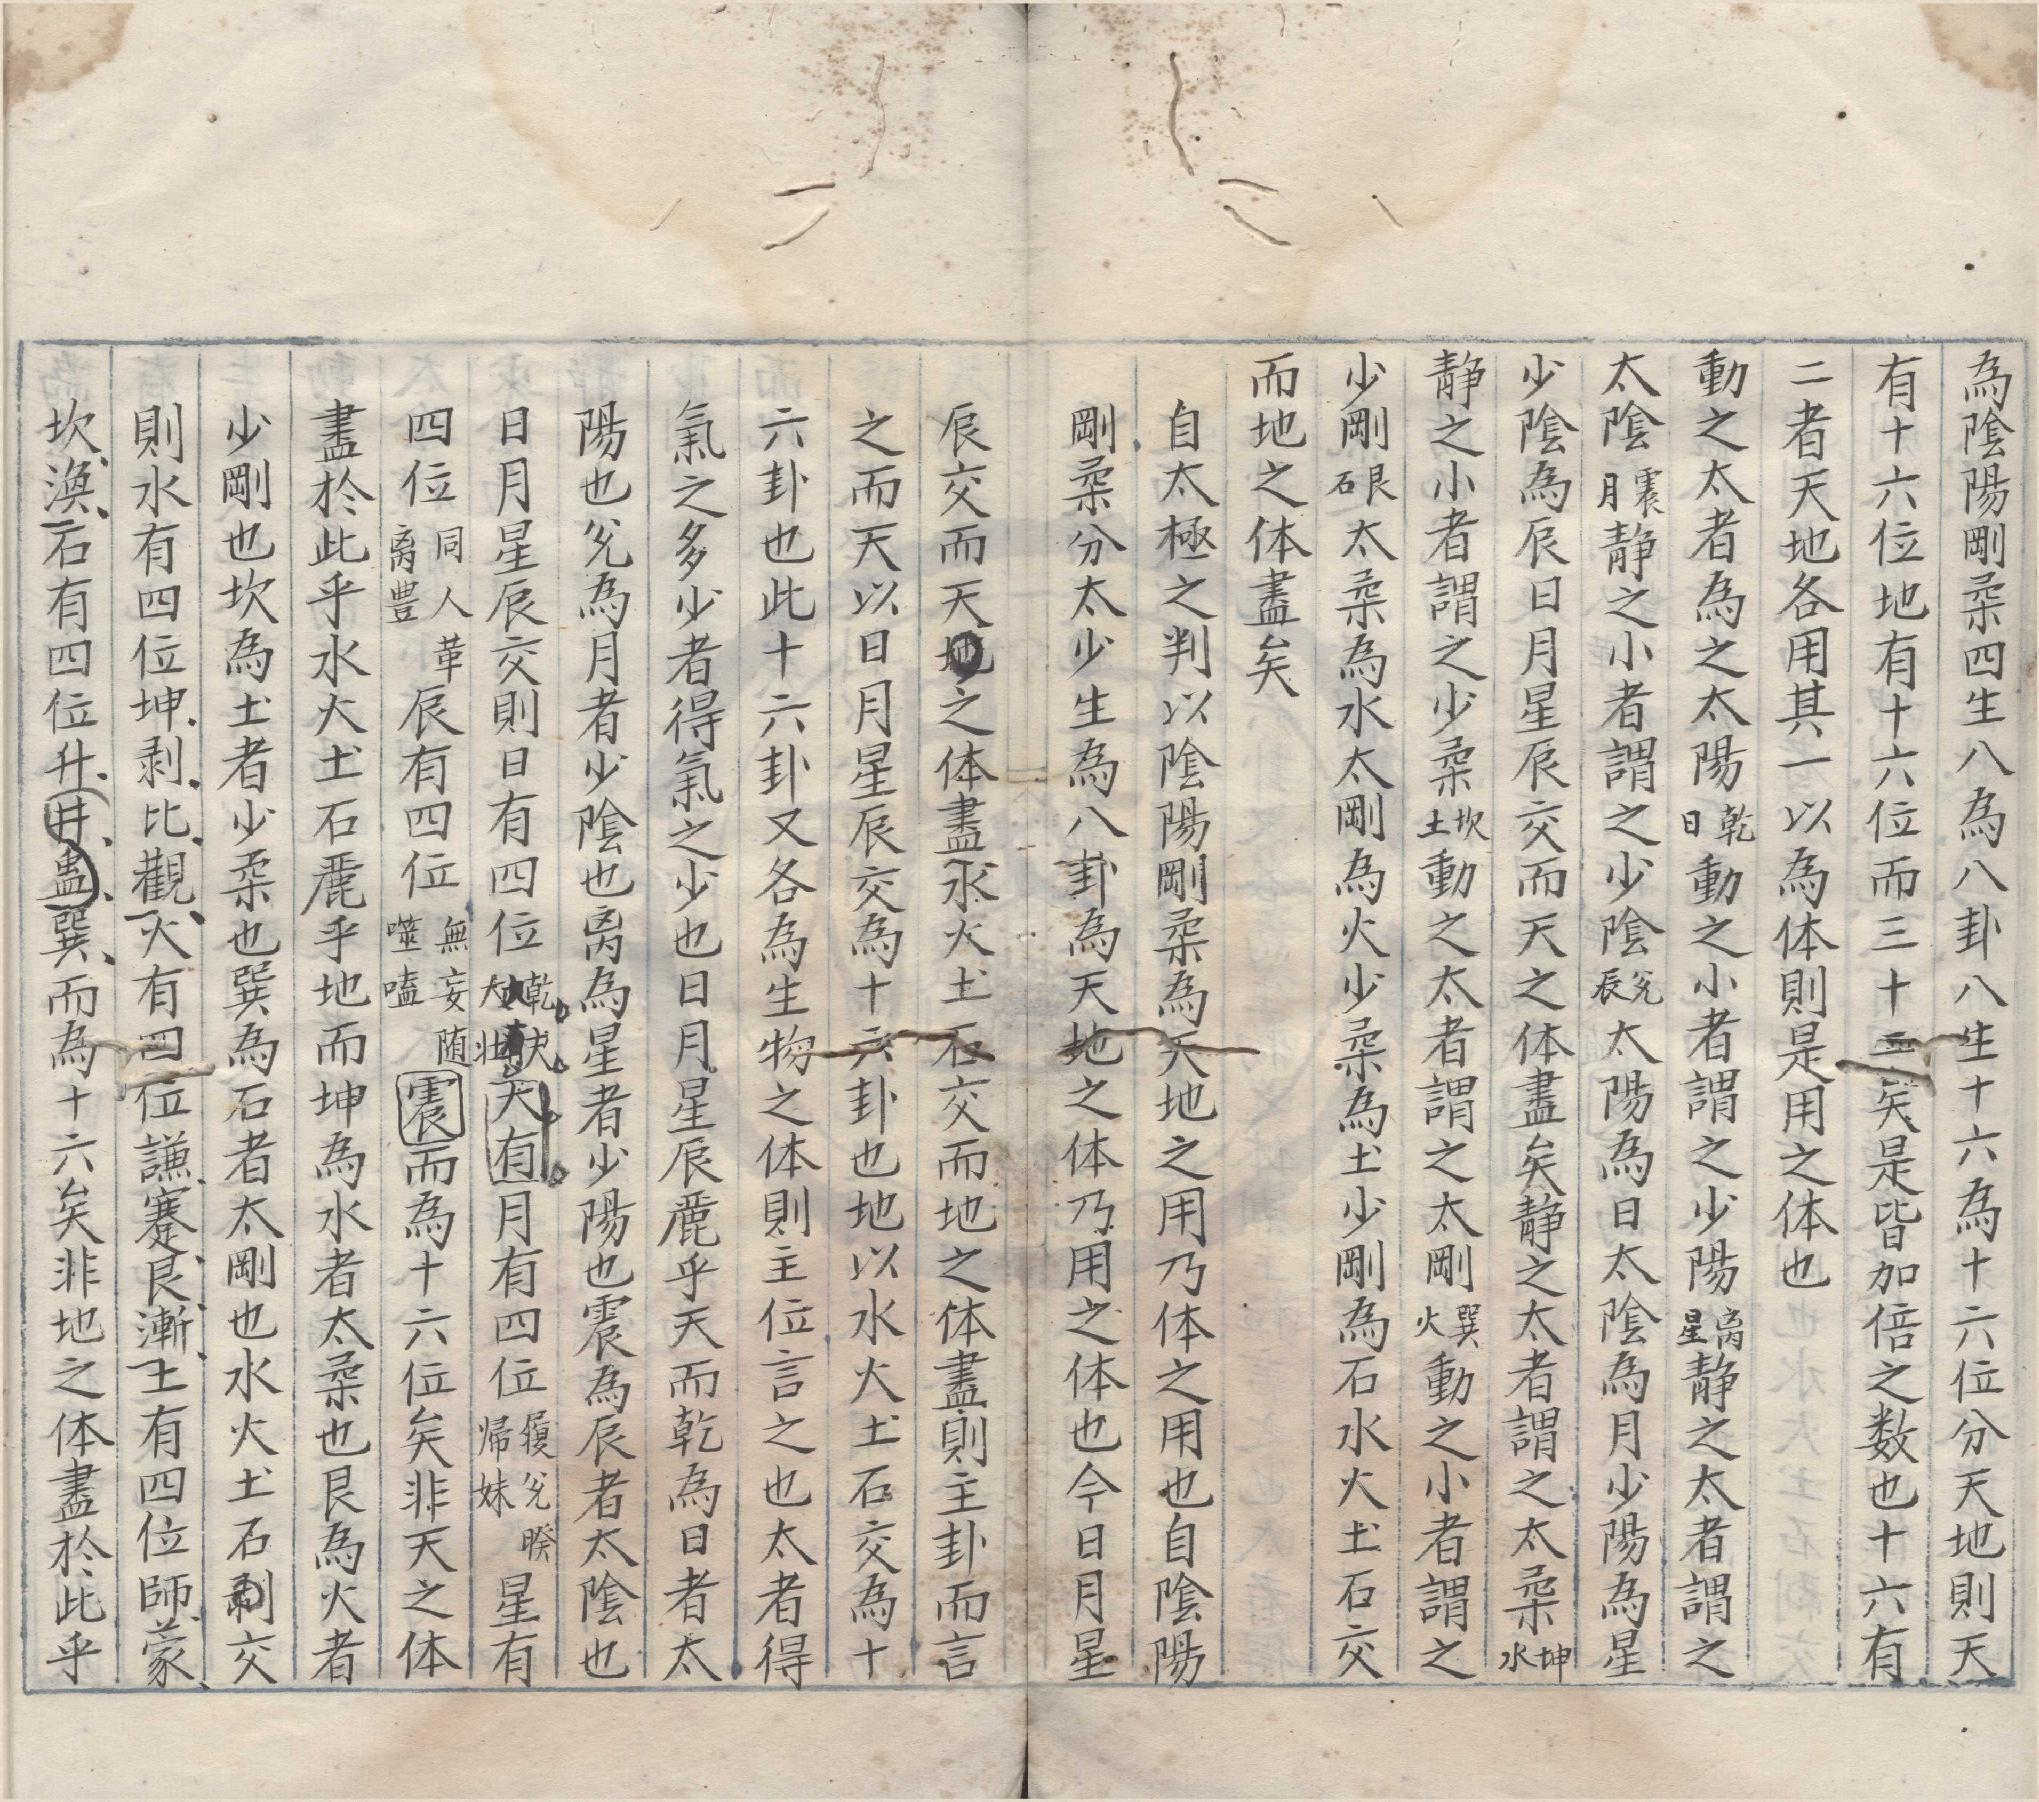 為陰陽剛柔四生八為八卦八生十六為十六位分天地則天
有十六位地有十六位而三十二矣是皆加倍之数也十六有
二者天地各用其一以為体則是用之体也
動之太者為之太陽乾日動之小者謂之少陽离星静之太者謂之
太陰震月静之小者謂之少陰兌辰太陽為日太陰為月少陽為星
少陰為辰日月星辰交而天之体盡矣静之太者謂之太柔坤水
静之小者謂之少柔坎土動之太者謂之太剛巽火動之小者謂之
少剛艮石太柔為水太剛為火少柔為土少剛為石水火土石交
而地之体盡矣
自太極之判以陰陽剛柔為天地之用乃体之用也自陰陽
剛柔分太少生為八卦為天地之体乃用之体也今日月星
辰交而天地之体盡水火土石交而地之体盡則主卦而言
之而天以日月星辰交為十六卦也地以水火土石交為十
六卦也此十六卦又各為生物之体則主位言之也太者得
氣之多少者得氣之少也日月星辰麗乎天而乾為日者太
陽也兌為月者少陰也离為星者少陽也震為辰者太陰也
日月星辰交則日有四位乾夬大壯天有月有四位履兌睽歸妹星有
四位同人革离豊辰有四位無妄随噬嗑震而為十六位矣非天之体
盡於此乎水火土石麗乎地而坤為水者太柔也艮為火者
少剛也坎為土者少柔也巽為石者太剛也水火土石剥交
則水有四位坤剥比觀火有四位謙蹇艮漸土有四位師蒙
坎渙石有四位升井蠱巽而為十六矣非地之体盡於此乎